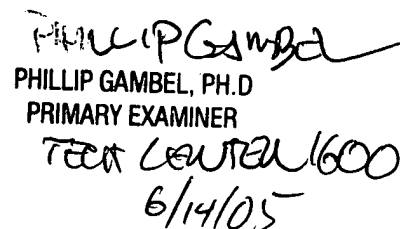 PHILLIP GAMBEL
PHILLIP GAMBEL, PH.D
PRIMARY EXAMINER
TECH CENTER 1600
6/14/05